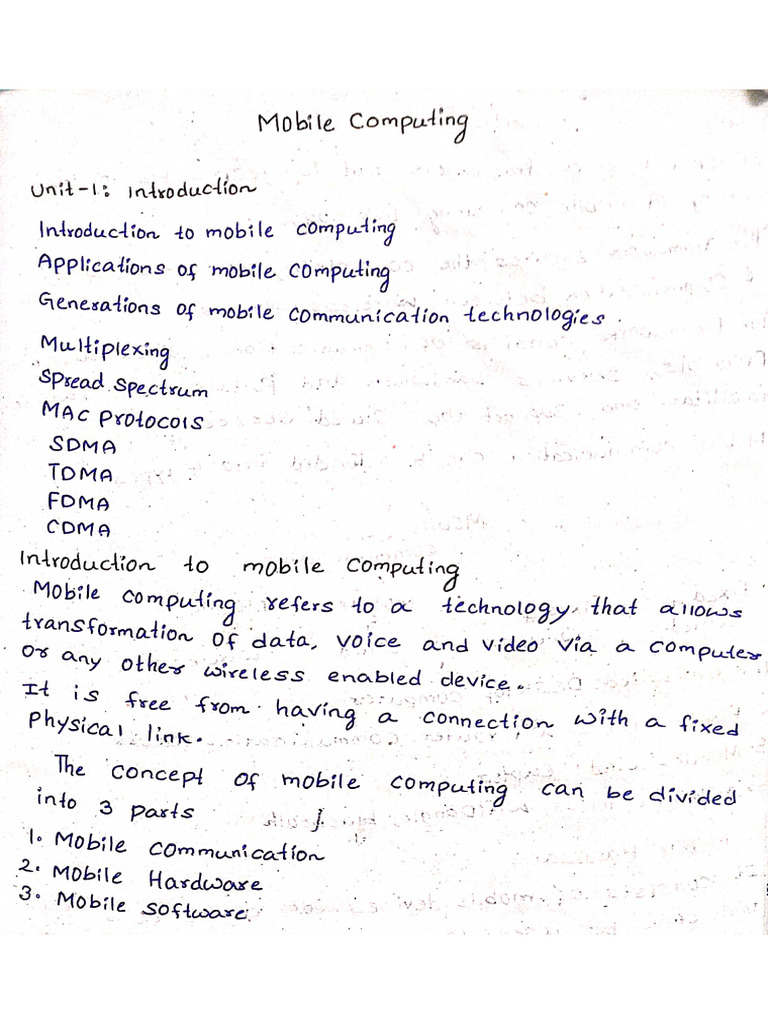 Mobile Computing
Unit-1: Introduction
Introduction to mobile computing
Applications of mobile computing
Generations of mobile communication technologies.
Multiplexing
Spread Spectrum
MAC Protocols
SDMA
TDMA
FDMA
CDMA
Introduction to mobile computing
Mobile computing refers to a technology that allows
transformation of data, voice and video via a computer
or any other wireless enabled device.
It is free from having a connection with a fixed
physical link.
The concept of mobile computing can be divided
into 3 parts
1. Mobile communication
2. Mobile Hardware
3. Mobile software